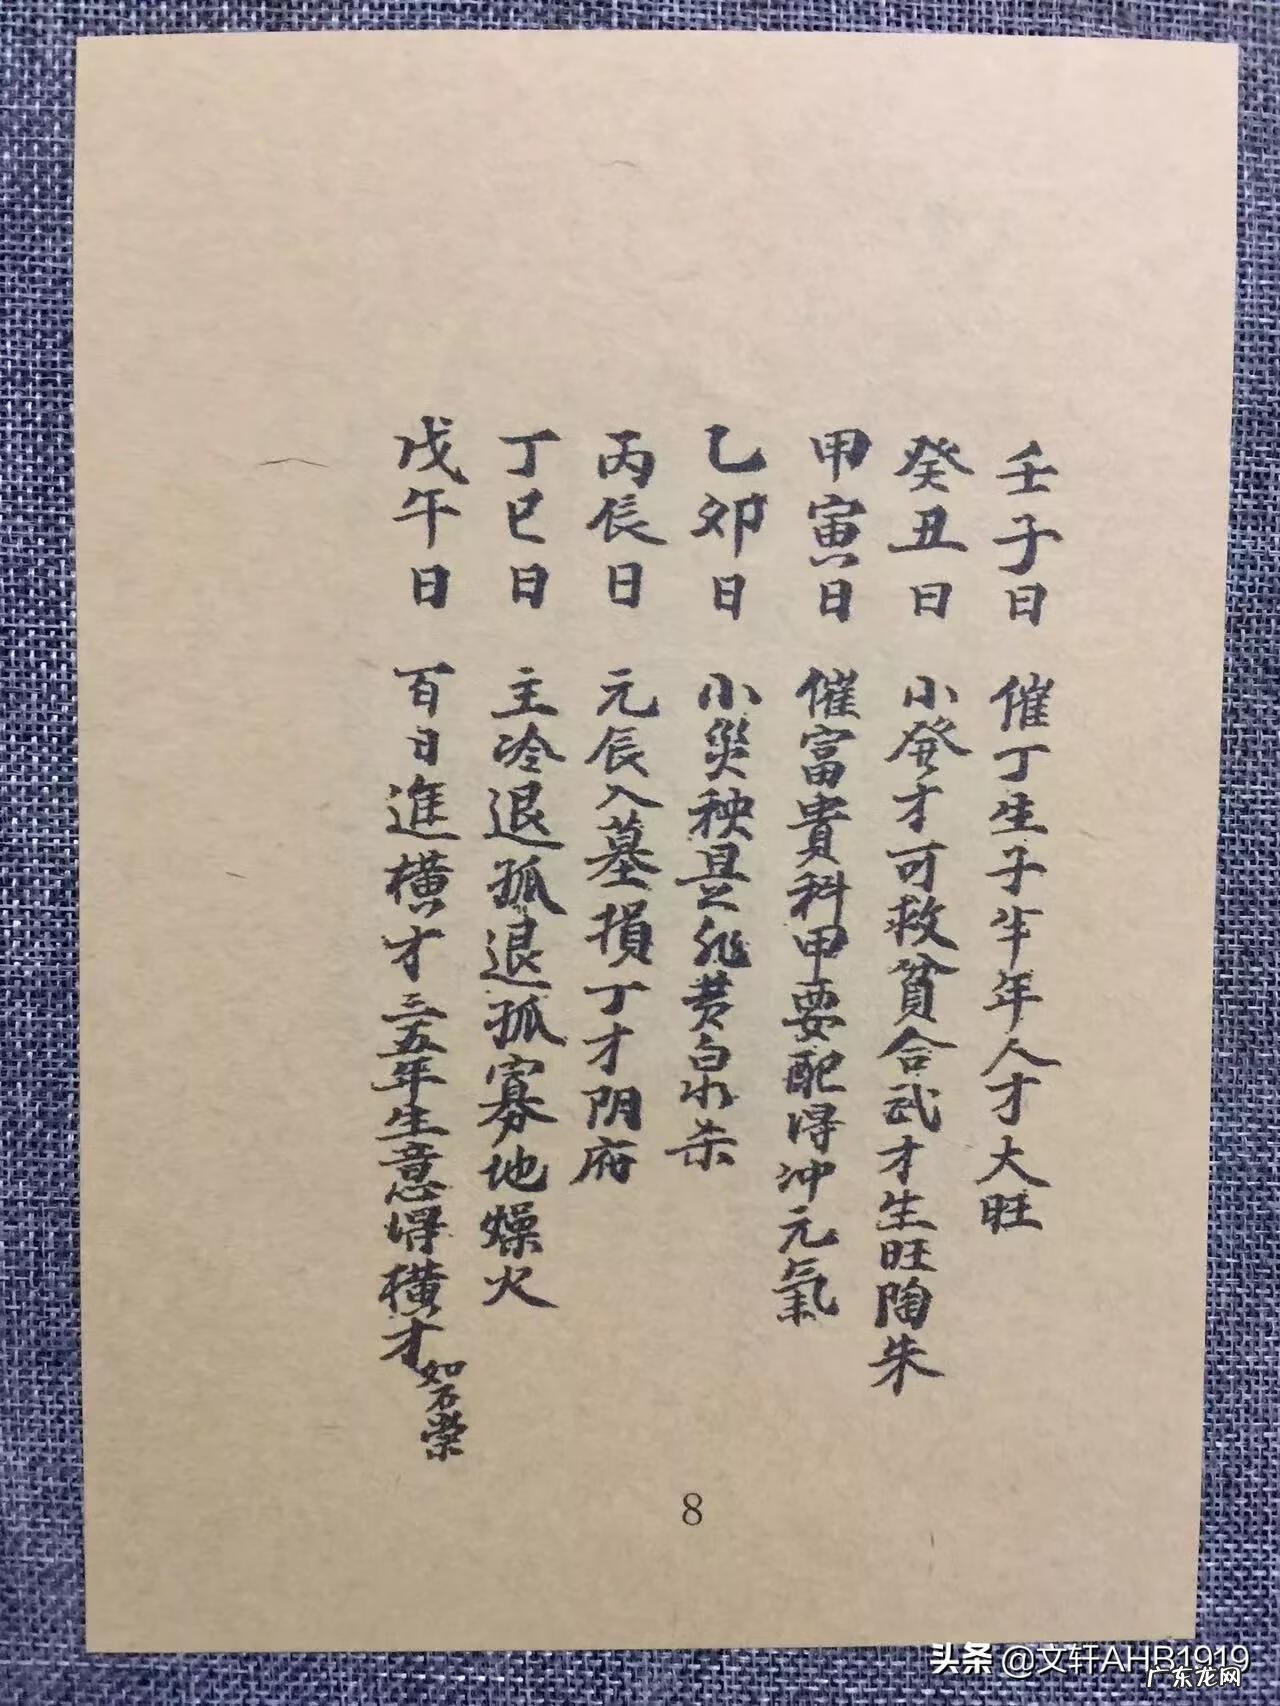 壬子日 催丁生子半年人才大旺
癸丑日 小發才可救貧合武才生旺陶朱
甲寅日 催富貴科甲要配得冲元氣
乙卯日 小災秧是犯黄泉水杀
丙辰日 元辰入墓損丁才阴府
丁巳日 主冷退孤退孤寡地燥火
戊午日 百日進橫才三五年生意得橫才如石崇
8
头条 @文轩AHB1919
广东龙网